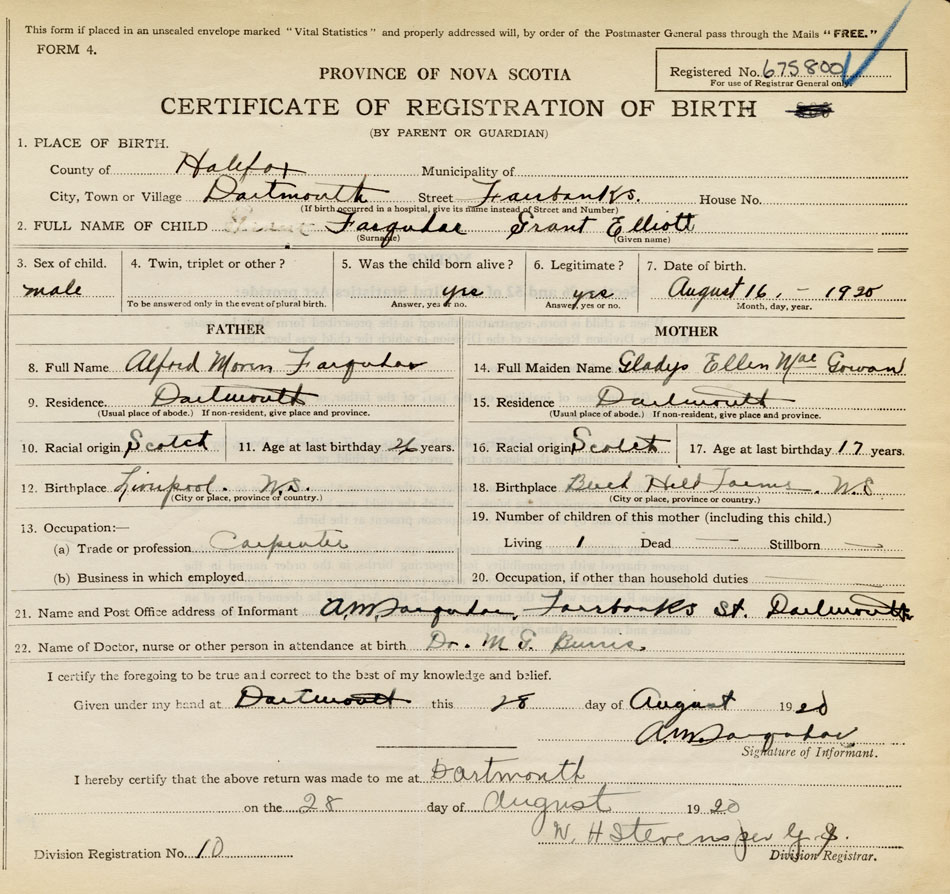 This form if placed in an unsealed envelope marked "Vital Statistics" and properly addressed will, by order of the Postmaster General pass through the Mails "FREE."
FORM 4.
Registered No. 675800
For use of Registrar General only.
PROVINCE OF NOVA SCOTIA
CERTIFICATE OF REGISTRATION OF BIRTH
(BY PARENT OR GUARDIAN)
1. PLACE OF BIRTH.
County of Halifax Municipality of
City, Town or Village Dartmouth Street Fairbanks. House No.
(If birth occurred in a hospital, give its name instead of Street and Number)
2. FULL NAME OF CHILD Farquhar Grant Elliott
(Surname) (Given name)
3. Sex of child. 4. Twin, triplet or other? 5. Was the child born alive? 6. Legitimate? 7. Date of birth.
male yes yes August 16, - 1920
To be answered only in the event of plural birth. Answer, yes or no. Answer, yes or no. Month, day, year.
FATHER MOTHER
8. Full Name Alfred Farquhar 14. Full Maiden Name Gladys Ellen Mac Gowan
9. Residence. Dartmouth 15. Residence Dartmouth
(Usual place of abode.) If non-resident, give place and province. (Usual place of abode.) If non-resident, give place and province.
10. Racial origin Scotch 11. Age at last birthday years. 16. Racial origin Scotch 17. Age at last birthday 17 years.
12. Birthplace Liverpool. N.S. 18. Birthplace N.S
(City or place, province or country.) (City or place, province or country.)
13. Occupation:— 19. Number of children of this mother (including this child.)
(a) Trade or profession Carpenter Living 1 Dead — Stillborn —
(b) Business in which employed 20. Occupation, if other than household duties —
21. Name and Post Office address of Informant A.M. Farquhar, Fairbanks St. Dartmouth
22. Name of Doctor, nurse or other person in attendance at birth Dr. M. G. Burris
I certify the foregoing to be true and correct to the best of my knowledge and belief.
Given under my hand at Dartmouth this 28 day of August 1920
A.M. Farquhar
Signature of Informant.
I hereby certify that the above return was made to me at Dartmouth
on the 28 day of August 1920
W. H Stevens per G. S.
Division Registration No. 10 Division Registrar.